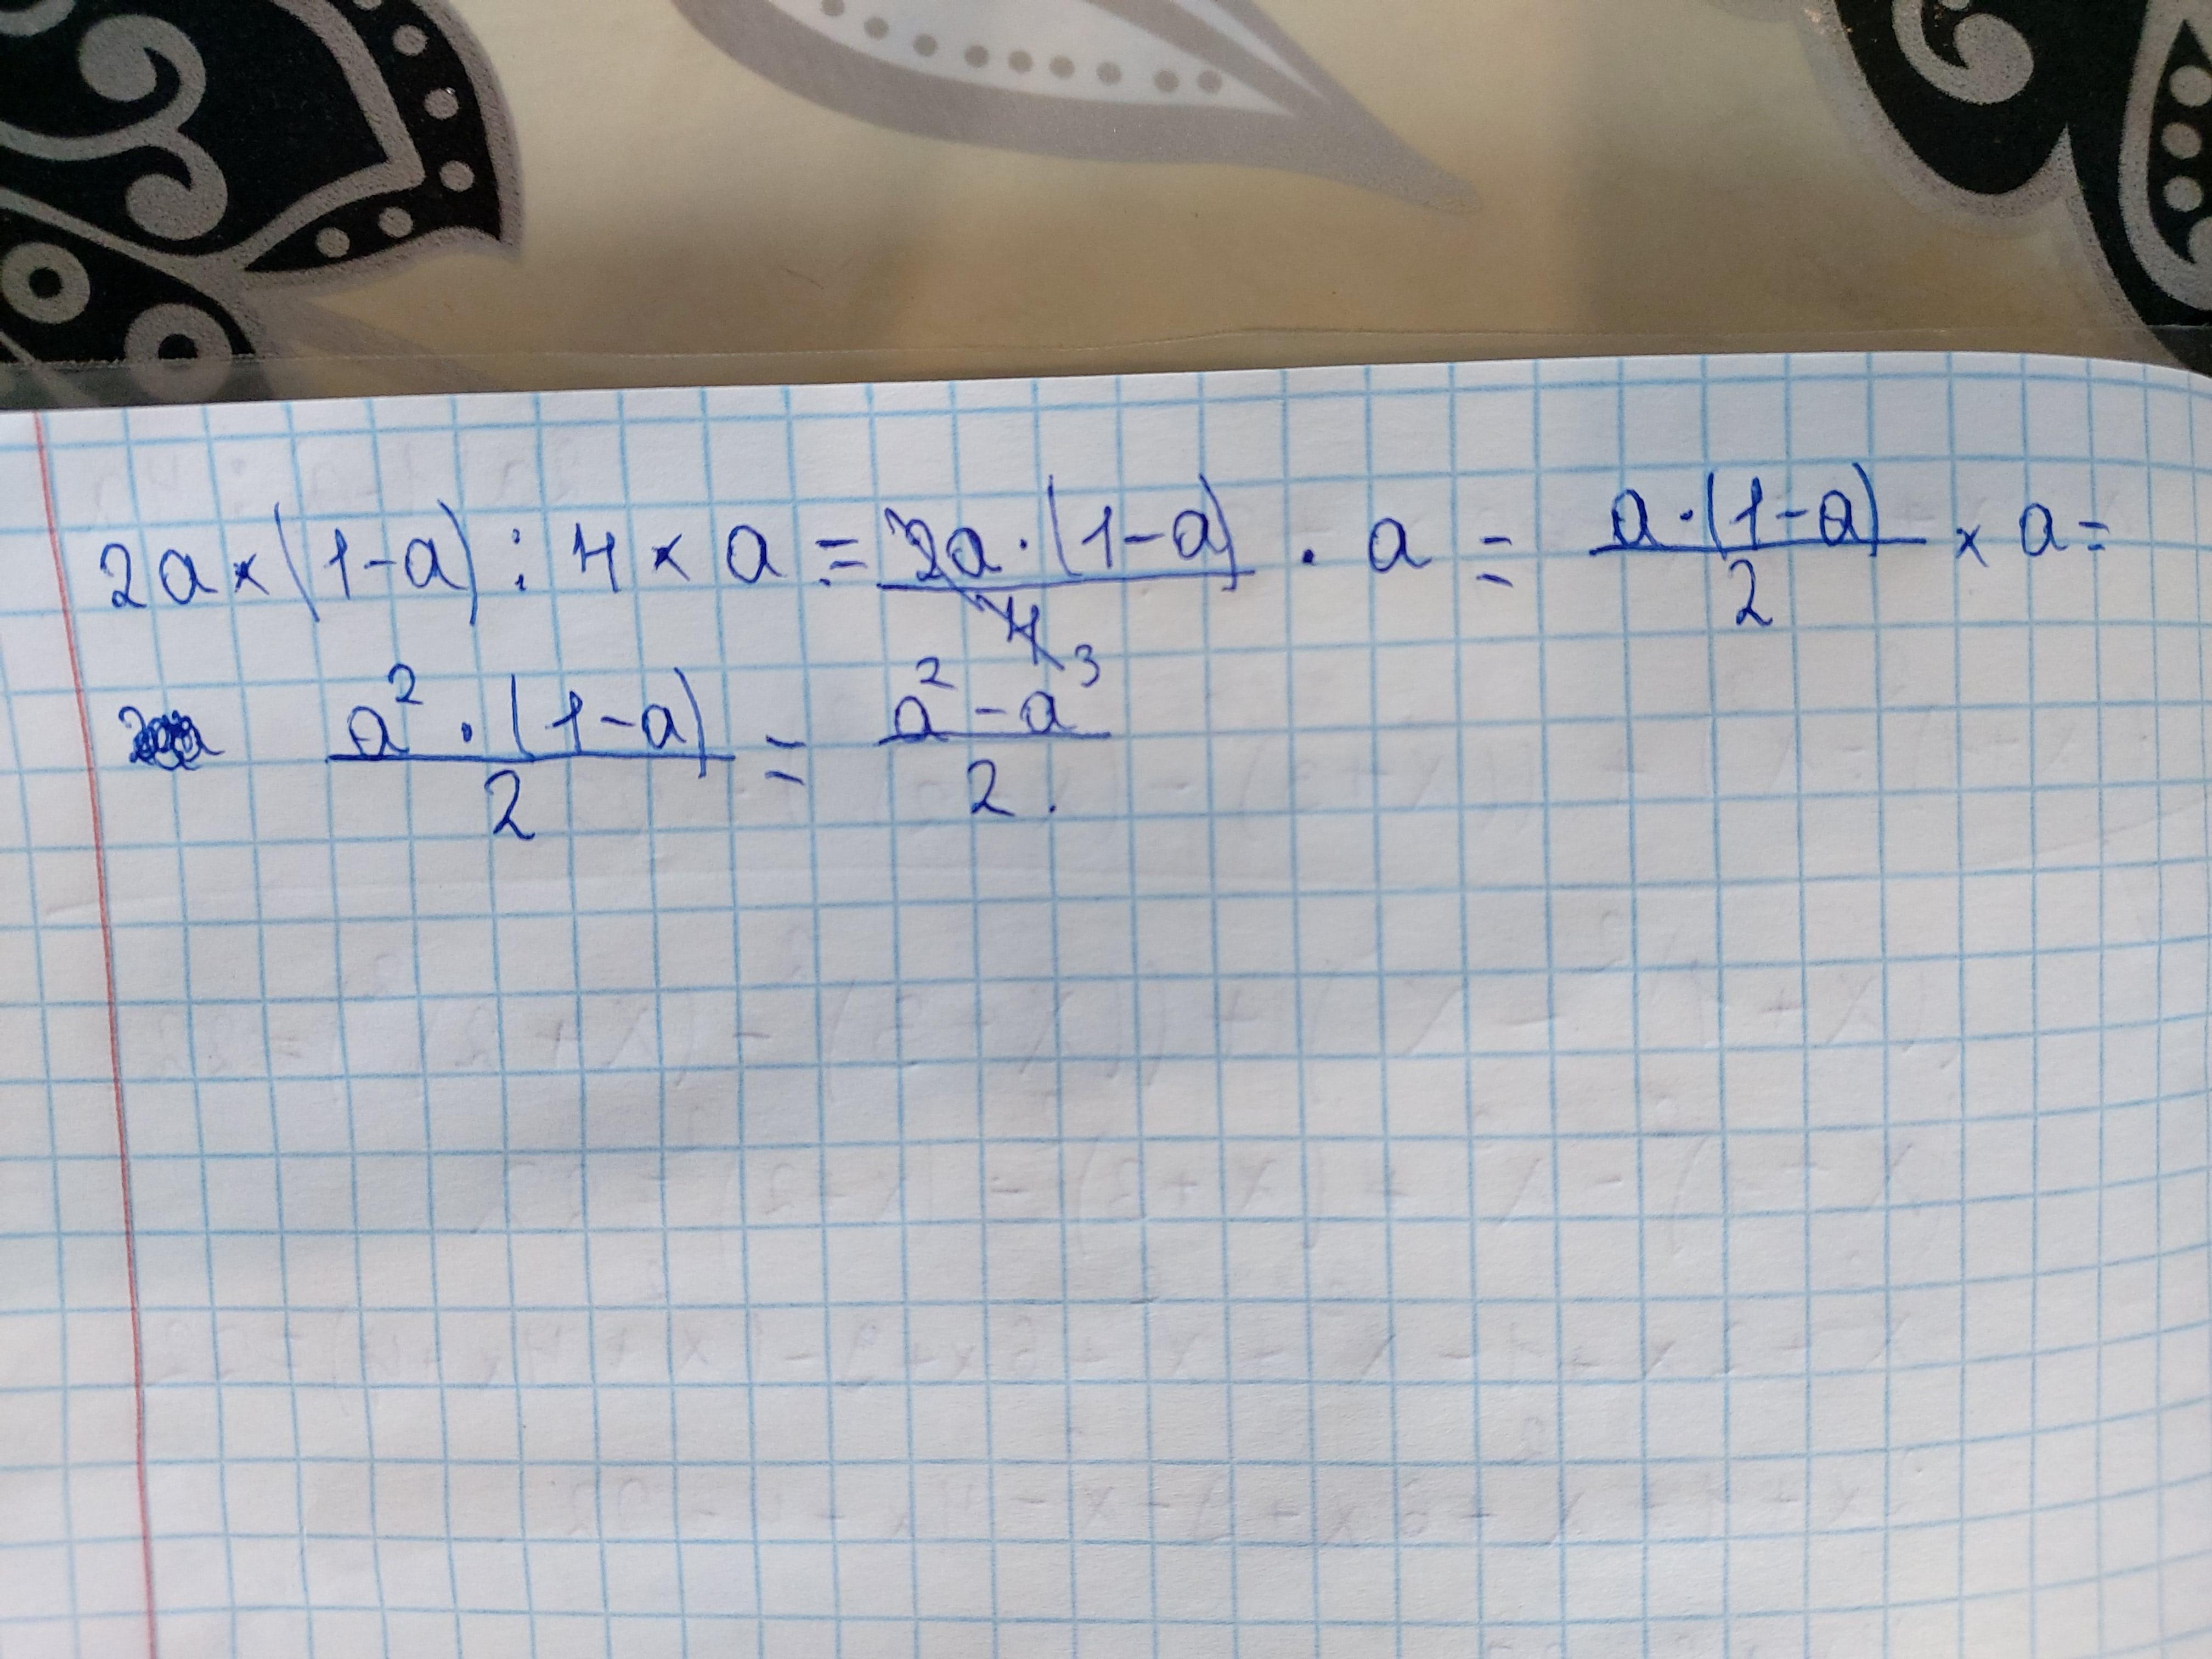 2a × (1-a) : 4 × a = 2a · (1-a) / 4 · a = a · (1-a) / 2 × a =
a² · (1-a) / 2 = a² - a³ / 2 .